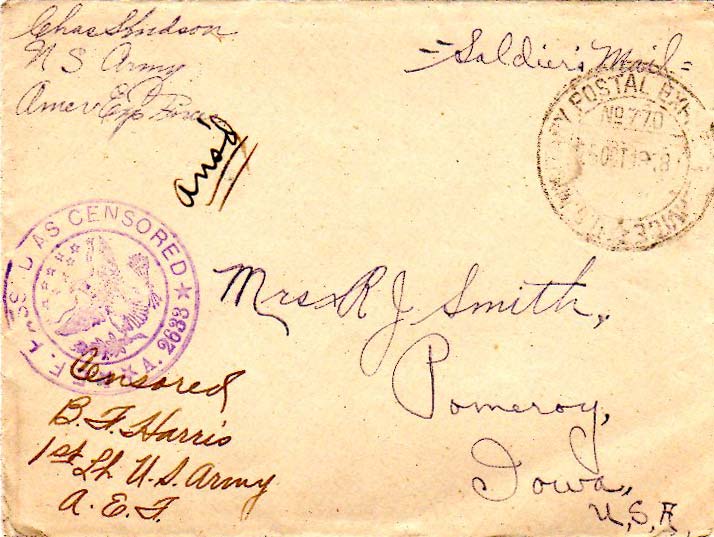 Chas S Hudson
U S Army
Amer Exp Forces
= Soldier's Mail =
ans'd
ARMY POSTAL EXP
No 770
OCT 1918
AS CENSORED
A. 2633
Mrs R J Smith,
Pomeroy,
Iowa,
U.S.A.
Censored
B. F. Harris
1st Lt U.S. Army
A. E. F.